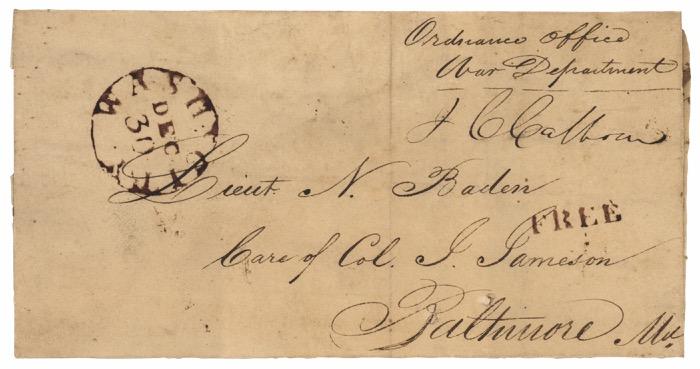 Ordnance Office
War Department
J C Calhoun
WASHn CITY
DEC
30
Lieut. N. Baden
FREE
Care of Col. J. Jameson
Baltimore Md.